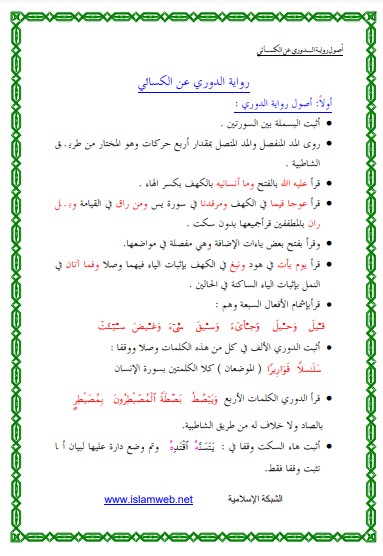 أصول رواية الدوري عن الكسائي
رواية الدوري عن الكسائي
أولاً: أصول رواية الدوري :
• أثبت البسملة بين السورتين .
• روى المد المنفصل والمد المتصل بمقدار أربع حركات وهو المختار من طريق
الشاطبية .
• قرأ عليه الله بالفتح وما أنسانيه بالكهف بكسر الهاء .
• قرأ عوجا قيما في الكهف ومرقدنا في سورة يس ومن راق في القيامة وبل
ران بالمطففين قرأجميعها بدون سكت .
• وقرأ بفتح بعض ياءات الإضافة وهي مفصلة في مواضعها.
• قرأ يوم يأت في هود ونبغ في الكهف بإثبات الياء فيهما وصلا وفما آتان في
النمل بإثبات الياء الساكنة في الحالين .
• قرأبإشمام الأفعال السبعة وهم :
قِيلَ وَحِيلَ وَجِاْىٓءَ وَسِيقَ سِىٓءَ وَغِيضَ سِيٓـَٔتْ
• أثبت الدوري الألف في كل من هذه الكلمات وصلا ووقفا :
سَلَـٰسِلَا۟ قَوَارِيرَا۟ ( الموضعان ) كلا الكلمتين بسورة الإنسان
• قرأ الدوري الكلمات الأربع وَيَبْصُطُ بَصْطَةً الْمُصَيْطِرُونَ بِمُصَيْطِرٍ
بالصاد ولا خلاف له من طريق الشاطبية.
• أثبت هاء السكت وقفا في : يَتَسَنَّهْ اقْتَدِهْ وتم وضع دارة عليها لبيان أنها
تثبت وقفا فقط.
الشبكة الإسلامية www.islamweb.net